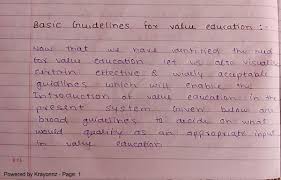 Basic Guidelines for value education :-
Now that we have identified the need
for value education let us also visualize
certain effective & widely acceptable
guidlines which will enable the
Introduction of value education in the
present system Given below are
broad guidlines to decide on what
would qualify as an appropriate input
in value education
Powered by Krayonnz - Page: 1